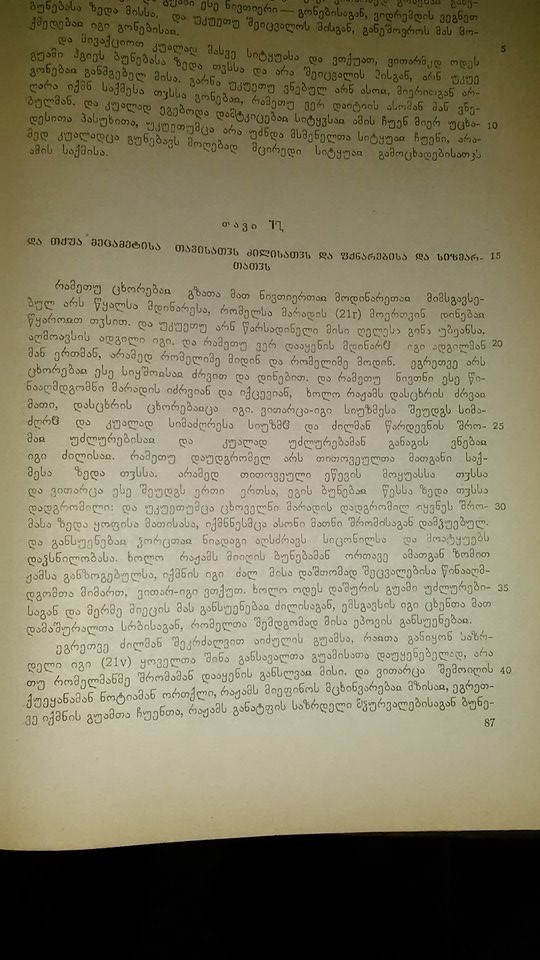 ბუნებასა ზედა მისსა. და უკუეთუ შეიცვალოს მისგან, განეშოვროს მას მო-
ქმედებაჲ იგი გონებისაჲ.
და მივაქციოთ კუალად მასვე სიტყუასა და ვთქუათ, ვითარმედ ოდეს
5
გუამი ჰგიეს ბუნებასა ზედა თჳსსა და არა შეიცვალის მისგან, არნ უკუე
გონებაჲ განმგებელ მისა. გარნა უკუეთუ ვნებულ არნ ასოჲ, მიერითგან არ-
ღარა იქმნ საქმესა თჳსსა გონებაჲ, რამეთუ ვერ დაიტიის ასომან მან ვნე-
ბულმან. და კუალად ეგებოდა დამტკიცებაჲ სიტყჳსაჲ ამის ჩუენ მიერ უცხა-
10
დესითა პასუხითა, უკუეთუმცა არა უძნდა მსმენელთა სიტყუაჲ ჩუენი, არა-
მედ კუალადცა გუნებავს მოღებად მცირედი სიტყუაჲ გამოცხადებისათჳს
ამის საქმისა.
თავი
და თქუა მეცამეტისა თავისათჳს ძილისათჳს და ფქნარებისა და სიზმარ-
15
თათჳს
რამეთუ ცხორებაჲ გზათა მათ ნივთიერთაჲ მოდინარეთაჲ მიმსგავსე-
ბულ არს წყალსა მდინარესა, რომელსა მარადის (21r) მოერთვინ დინებაჲ
წყაროჲთ თჳსით. და უკუეთუ არნ წარსადინელი მისი ღელესა
აღმოავსის ადგილი იგი. და რამეთუ ვერ დააყენის მდინარჱ იგი ადგილმან
20
მან ერთმან, არამედ რომელიმე მიდინ და რომელიმე მოდინ. ეგრეთვე არს
ცხორებაჲ ესე სიყმოჲსაჲ ძრვით და დინებით. და რამეთუ ნივთნი ესე წი-
ნააღმდგომნი მარადის იძრვიან და იქცევიან, ხოლო რაჟამს დასცხრის ძრვაჲ
მათი, დასცხრის ცხორებაჲცა იგი. ვითარცა-იგი სიუზმესა შეუდგს სიმა-
ძღრჱ და კუალად სიმაძღრესა სიუზმჱ და ძილმან წარდევნის შრო-
25
მაჲ უძლურებისაჲ და კუალად უძლურებამან განაგის ვნებაჲ
იგი ძილისაჲ. რამეთუ დაუდგრომელ არს თითოეულთა მათგანი საქ-
მესა ზედა თჳსსა. არამედ თითოეული ეწევის მოყუასსა თჳსსა
და ვითარცა ესე შეუდგს ერთი ერთსა, ეგის ბუნებაჲ წესსა ზედა თჳსსა
დადგრომილი: და უკუეთუმცა ცხოველნი მარადის დადგრომილ იყვნეს შრო-
30
მასა ზედა ყოფისა მათისასა, იქმნნესმცა ასონი მათნი შრომისაგან დამჭუებულ.
და განსუენებაჲ ჴორცთაჲ ნიადაგი აღსძრავს სიცონილსა და მოატყუებს
დაჴსნილობასა. ხოლო რაჟამს მიიღის ბუნებამან ორთავე ამათგან ზომით
ჟამსა განზოგებულსა, იქმნის იგი ძალ მისა დაშთომად შეცვალებისა წინააღმ-
დგომთა მიმართ, ვითარ-იგი ვთქუთ. ხოლო ოდეს დაშურის გუამი უძლურები-
35
საგან და მერმე მიეცის მას განსუენებაჲ ძილისაგან, ემსგავსის იგი ცხენთა მათ
დამაშურალთა სრბისაგან, რომელთა შემდგომად მისა ეპოვის განსუენებაჲ.
ეგრეთვე ძილმან შეკრძალვით აიძულის გუამსა, რაჲთა განიყონ საზრ-
დელი იგი (21v) ყოველთა შინა განსავალთა გუამისათა დაუყენებელად, არა
თუ რომელმანმე შრომამან დააყენის განსლვაჲ მისი. და ვითარცა შემოიღის
40
ქუეყანამან ნოტიამან ორთქლი, რაჟამს მიეფინოს მცხინვარებაჲ მზისაჲ, ეგრეთ-
ვე იქმნის გუამთა ჩუენთა, რაჟამს განატფის საზრდელი მჴურვალებისაგან ბუნე-
87